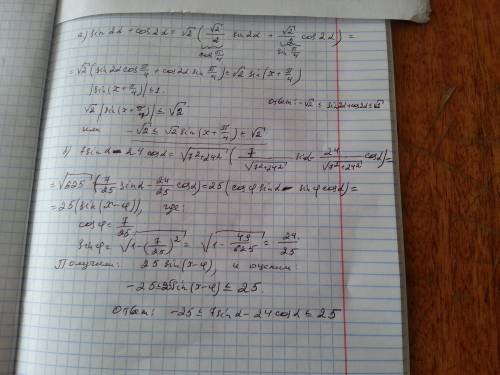 a) sin 2α + cos 2α = √2 ( √2/2 sin 2α + √2/2 cos 2α ) =
cos π/4 sin π/4
= √2 (sin 2α cos π/4 + cos 2α sin π/4) = √2 sin (x + π/4)
|sin (x + π/4)| ≤ 1.
√2 |sin (x + π/4)| ≤ √2 ответ: -√2 ≤ sin2α+cos2α ≤ √2
или -√2 ≤ √2 sin (x + π/4) ≤ √2
б) 7 sin α - 24 cos α = √(7²+24²) ( 7/√(7²+24²) sin α - 24/√(7²+24²) cos α ) =
= √625 ( 7/25 sin α - 24/25 cos α ) = 25 (cos φ sin α - sin φ cos α) =
= 25 (sin (x - φ)), где:
cos φ = 7/25
sin φ = √(1 - (7/25)²) = √(1 - 49/625) = 24/25
Получим: 25 sin (x - φ), и оценим:
-25 ≤ 25 sin (x - φ) ≤ 25.
Ответ: -25 ≤ 7 sin α - 24 cos α ≤ 25